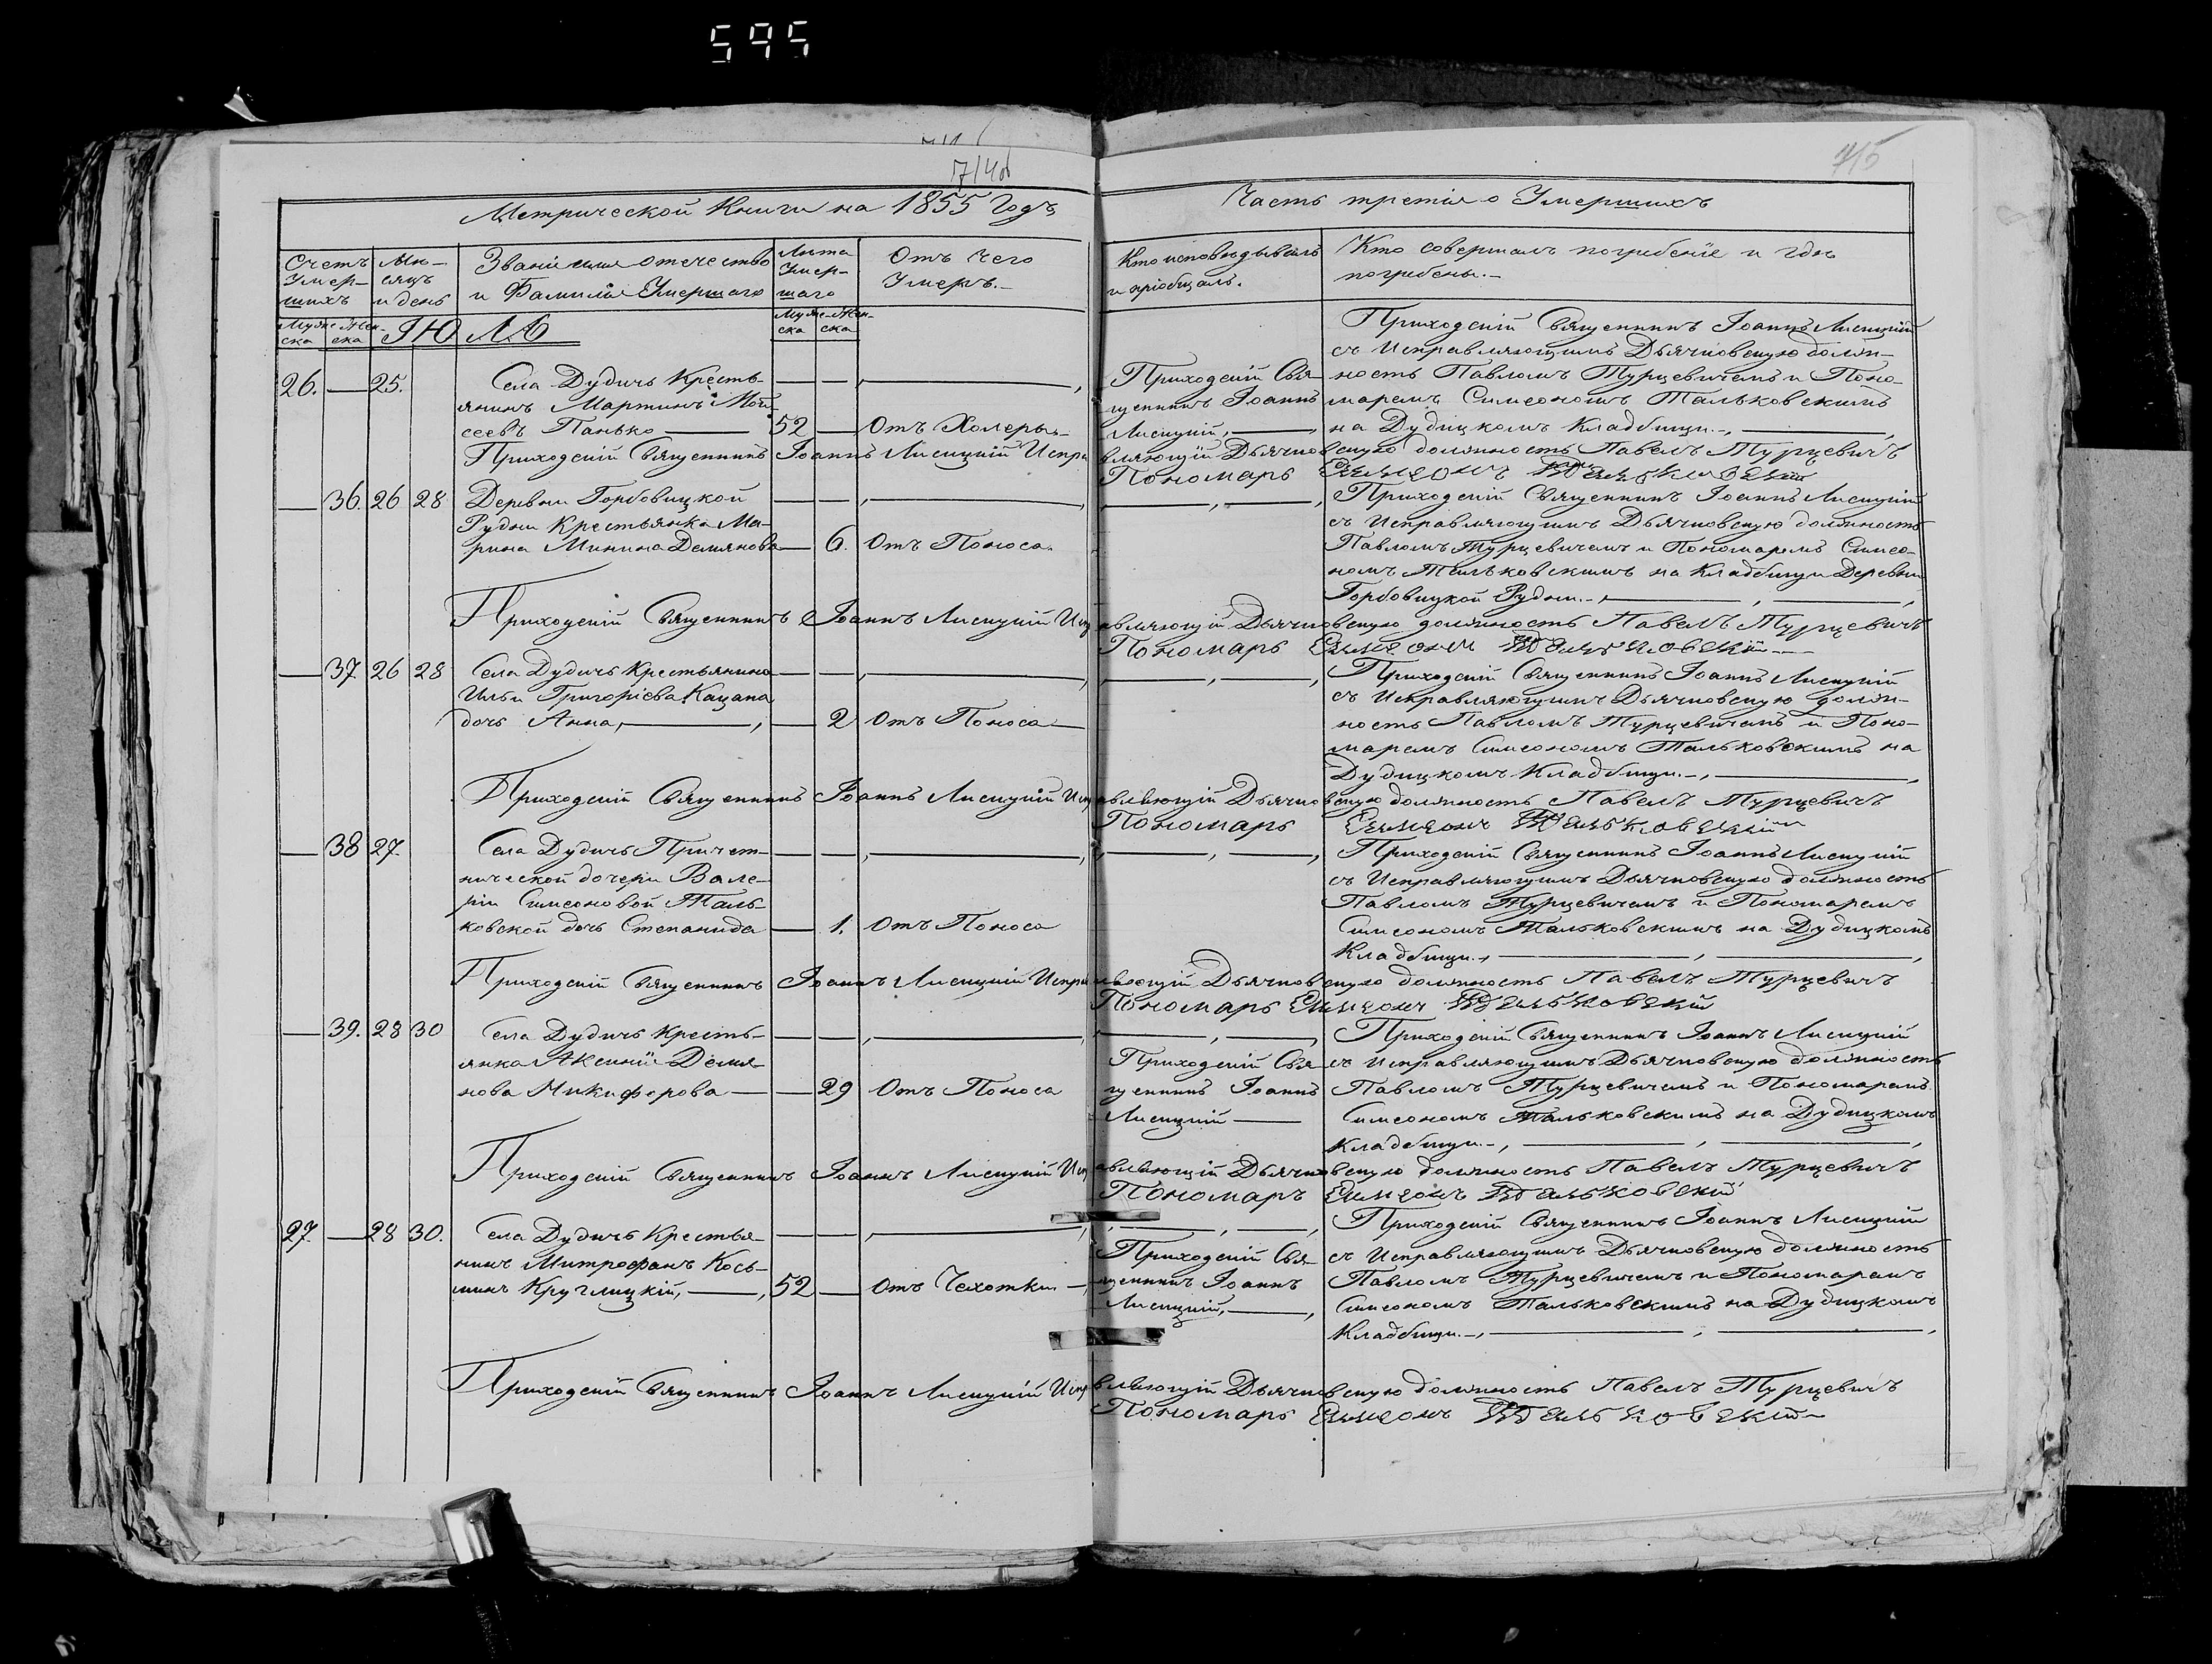 595
714об
715
Метрической Книги на 1855 Годъ
Часть третія о Умершихъ
Счетъ Умер-шихъ
Мѣ-сяцъ и день
Званіе имя отечество и Фамилія Умершаго
Лѣта Умер-шаго
Отъ Чего Умеръ.-
Кто исповѣдывалъ и пріобщалъ.
Кто совершалъ погребеніе и гдѣ погребены.-
Муже-ска
Жен-ска
ІЮЛЬ
Муже-ска
Жен-ска
26. — 25.
Села Дудичь Кресть-
янинъ Мартинъ Мои-
сеевъ Панько — 52 — Отъ Холеры.-
Приходскій Свя-
щенникъ Іоаннъ
Лисицкій, —
Приходскій Священникъ Іоаннъ Лисицкій
съ Исправляющимъ Дьячковскую долж-
ность Павломъ Турцевичемъ и Поно-
маремъ Симеономъ Тальковскимъ
на Дудицкомъ Кладбищѣ.-,
Приходскій Священникъ Іоаннъ Лисицкій Исправляющій Дьячковскую должность Павелъ Турцевичъ
Пономарь Симеонъ Тальковскій
— 36. 26 28
Деревни Горбовицкой
Рудни Крестьянка Ма-
рина Минина Демянова — 6. Отъ Поноса.
Приходскій Священникъ Іоаннъ Лисицкій
съ Исправляющимъ Дьячковскую должность
Павломъ Турцевичемъ и Пономаремъ Симео-
номъ Тальковскимъ на Кладбищѣ Деревни
Горбовицкой Рудни.-,
Приходскій Священникъ Іоаннъ Лисицкій Исправляющій Дьячковскую должность Павелъ Турцевичъ
Пономарь Симеонъ Тальковскій
— 37 26 28
Села Дудичь Крестьянина
Ильи Григоріева Кацана
дочь Анна, — 2 Отъ Поноса
Приходскій Священникъ Іоаннъ Лисицкій
съ Исправляющимъ Дьячковскую долж-
ность Павломъ Турцевичемъ и Поно-
маремъ Симеономъ Тальковскимъ на
Дудицкомъ Кладбищѣ.-,
Приходскій Священникъ Іоаннъ Лисицкій Исправляющій Дьячковскую должность Павелъ Турцевичъ
Пономарь Симеонъ Тальковскій
— 38 27.
Села Дудичь Причет-
нической дочери Вале-
ріи Симеоновой Таль-
ковской дочь Степанида — 1. Отъ Поноса
Приходскій Священникъ Іоаннъ Лисицкій
съ Исправляющимъ Дьячковскую должность
Павломъ Турцевичемъ и Пономаремъ
Симеономъ Тальковскимъ на Дудицкомъ
Кладбищѣ.,
Приходскій Священникъ Іоаннъ Лисицкій Исправляющій Дьячковскую должность Павелъ Турцевичъ
Пономарь Симеонъ Тальковскій
— 39. 28 30
Села Дудичь Кресть-
янка Аксинія Демя-
нова Никифорова — 29 Отъ Поноса
Приходскій Свя-
щенникъ Іоаннъ
Лисицкій —
Приходскій Священникъ Іоаннъ Лисицкій
съ Исправляющимъ Дьячковскую должность
Павломъ Турцевичемъ и Пономаремъ
Симеономъ Тальковскимъ на Дудицкомъ
Кладбищѣ.-,
Приходскій Священникъ Іоаннъ Лисицкій Исправляющій Дьячковскую должность Павелъ Турцевичъ
Пономарь Симеонъ Тальковскій
27. — 28 30.
Села Дудичь Крестья-
нинъ Митрофанъ Кось-
минъ Круглицкій, — 52 — Отъ Чехотки —
Приходскій Свя-
щенникъ Іоаннъ
Лисицкій, —
Приходскій Священникъ Іоаннъ Лисицкій
съ Исправляющимъ Дьячковскую должность
Павломъ Турцевичемъ и Пономаремъ
Симеономъ Тальковскимъ на Дудицкомъ
Кладбищѣ.-,
Приходскій Священникъ Іоаннъ Лисицкій Исправляющій Дьячковскую должность Павелъ Турцевичъ
Пономарь Симеонъ Тальковскій